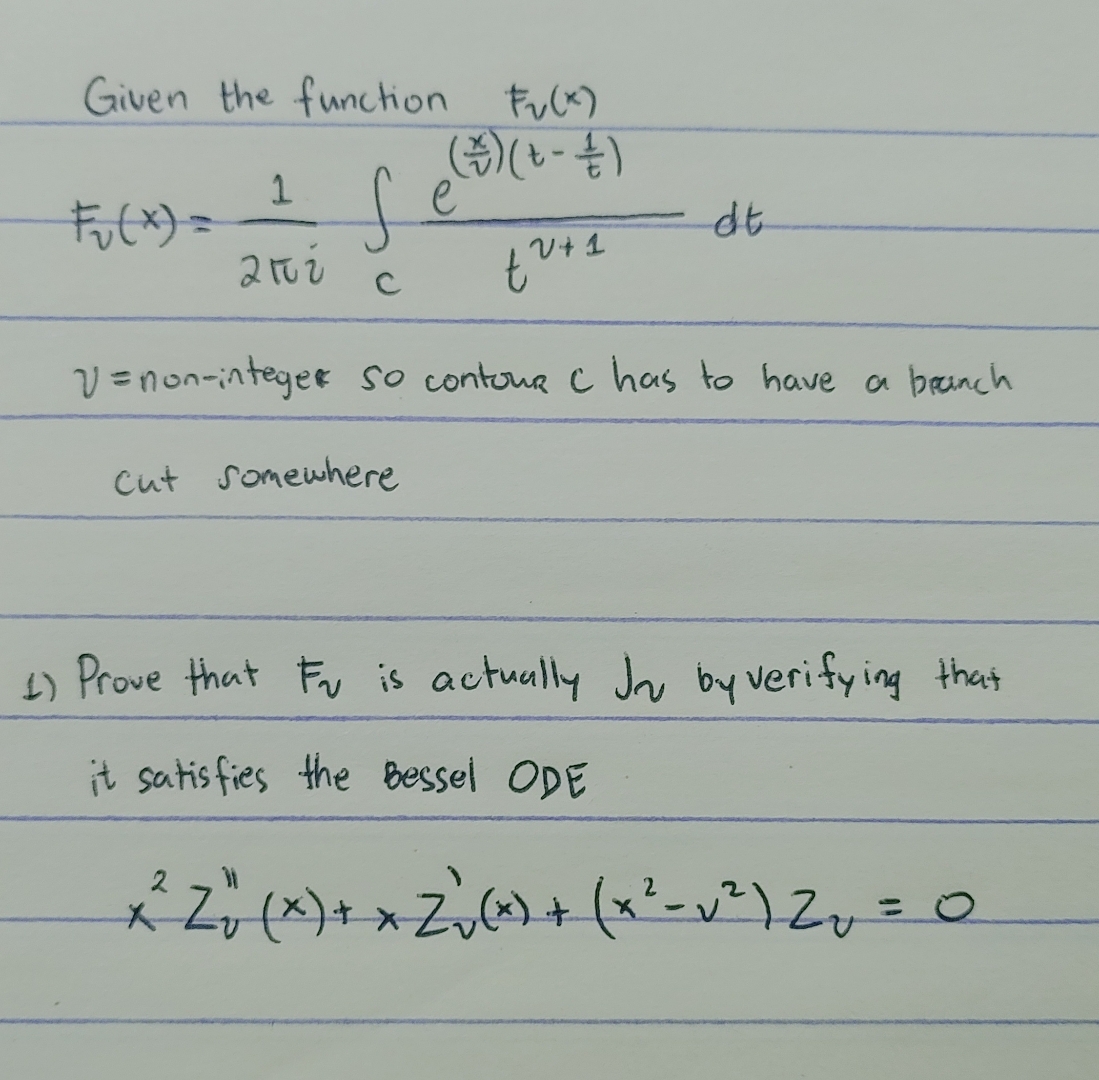 Given the function F_ν(x)
F_ν(x) = \frac{1}{2πi} \int_C \frac{e^{(\frac{x}{ν})(t - \frac{1}{t})}}{t^{ν+1}} dt
ν = non-integer so contour C has to have a branch
cut somewhere
1) Prove that F_ν is actually J_ν by verifying that
it satisfies the Bessel ODE
x^2 Z_ν''(x) + x Z_ν'(x) + (x^2 - ν^2) Z_ν = 0